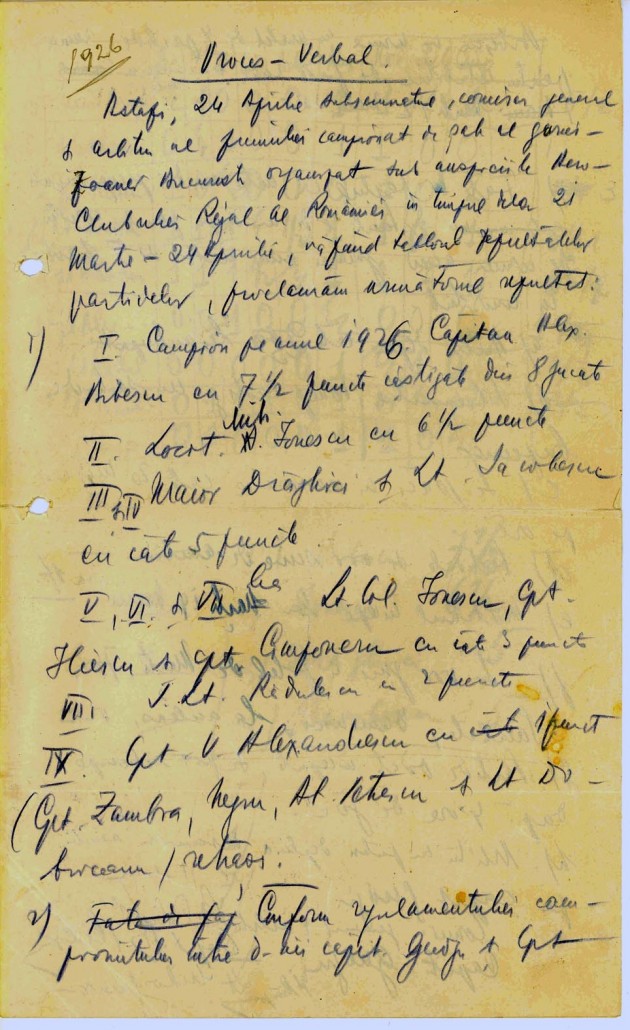 1926
Proces-Verbal.
Astăzi, 24 Aprilie subsemnatul, comisar general
și arbitru al primului campionat de șah al garni-
zoanei București organizat sub auspiciile Aero-
Clubului Regal al României în timpul dela 21
Martie - 24 Aprilie, văzând tabloul rezultatelor
partidelor, proclamăm următorul rezultat:
1) I. Campion pe anul 1926. Căpitan Alex.
Bibescu cu 7 1/2 puncte câștigate din 8 jucate
II. Locot. Mih. Ionescu cu 6 1/2 puncte
III și IV Maior Drăghici și Lt. Iacobescu
cu câte 5 puncte
V, VI. și VII Lt. Col. Ionescu, Cpt.
Iliescu și Cpt. cu câte 3 puncte
VIII Lt. Rădulescu cu 2 puncte
IX. Cpt. V. Alexandrescu cu cât 1 punct
(Cpt. Zambra, Negru, Al. și Lt Do-
broceanu) retrași.
2) Conform regulamentului com-
promitului între d-nii capit. și Cpt